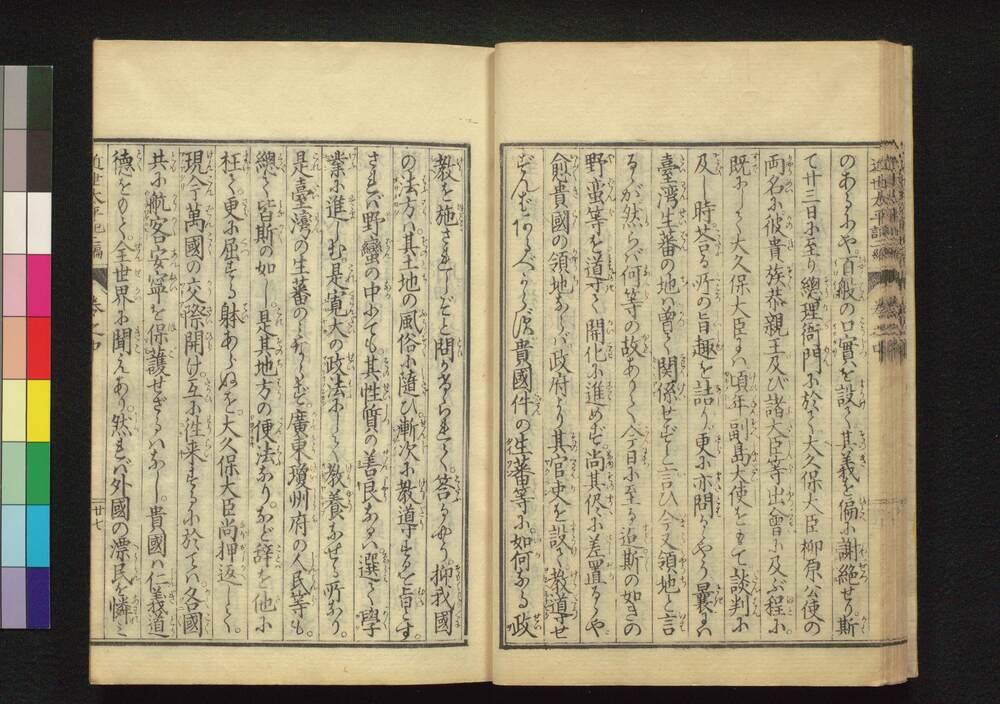 のあるにや百般の口實を設て其義を偏に謝絶せり斯
て廿三日に至り總理衙門に於て大久保大臣柳原公使の
両名に彼貴族恭親王及び諸大臣等出會に及ぶ程に。
既にして大久保大臣には頃年副島大使をもて談判に
及し時答る所の旨趣を詰り更に亦問るやう曩には
臺湾生蕃の地は曽て関係せずと言ひ今又領地と言
るが然らば何等の故ありて今日に至る迠斯の如きの
野蛮等を道て開化に進めず。尚其侭に差置るや
愈貴國の領地ならば政府より其官吏を設て教導せ
ずんばあるべからず貴國件の生蕃等に。如何なる政
教を施されしぞと問かけられて。答るやう。抑我國
の法方は其土地の風俗に随ひ漸次に教導するを旨とす。
されば野蠻の中にても。其性質の善良なるは選て學
業に進しむ是寛大の政法にして教養なせる所なり。
是臺湾の生蕃のみならず。廣東瓊州府の人民等も。
總て皆斯の如し。是其地方の便法なり。など辞を他に
枉て。更に屈する躰あらぬを。大久保大臣尚押返して。
現今萬國の交際開け。互に往来するに於ては各國
共に航客安寧を保護せざるはなし。貴國は仁義道
徳をもて。全世界に聞えあり。然れば外國の漂民を憐み
近世太平記二編
巻之中
廿七